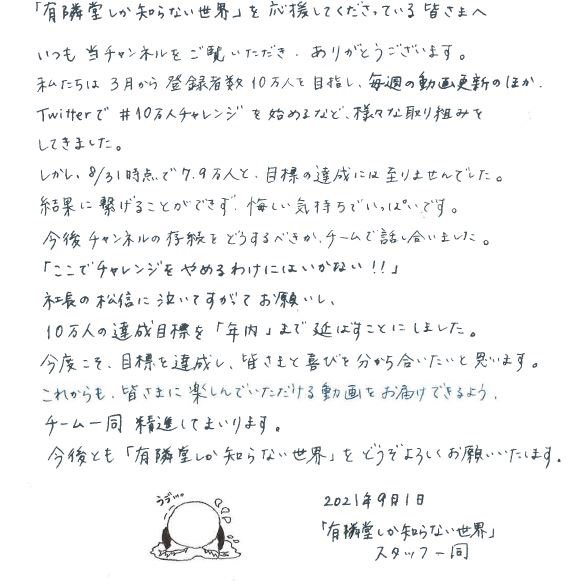 「有隣堂しか知らない世界」を応援してくださっている皆さまへ
いつも当チャンネルをご覧いただき、ありがとうございます。
私たちは3月から登録者数10万人を目指し、毎週の動画更新のほか、
Twitterで#10万人チャレンジを始めるなど、様々な取り組みを
してきました。
しかし、8/31時点で7.9万人と、目標の達成には至りませんでした。
結果に繋げることができず、悔しい気持ちでいっぱいです。
今後チャンネルの存続をどうするべきか、チームで話し合いました。
「ここでチャレンジをやめるわけにはいかない!!」
社長の松信に泣いてすがてお願いし、
10万人の達成目標を「年内」まで延ばすことにしました。
今度こそ、目標を達成し、皆さまと喜びを分かち合いたいと思います。
これからも、皆さまに楽しんでいただける動画をお届けできるよう、
チーム一同 精進してまいります。
今後とも「有隣堂しか知らない世界」をどうぞよろしくお願いいたします。
うぅ…。
2021年9月1日
「有隣堂しか知らない世界」
スタッフ一同